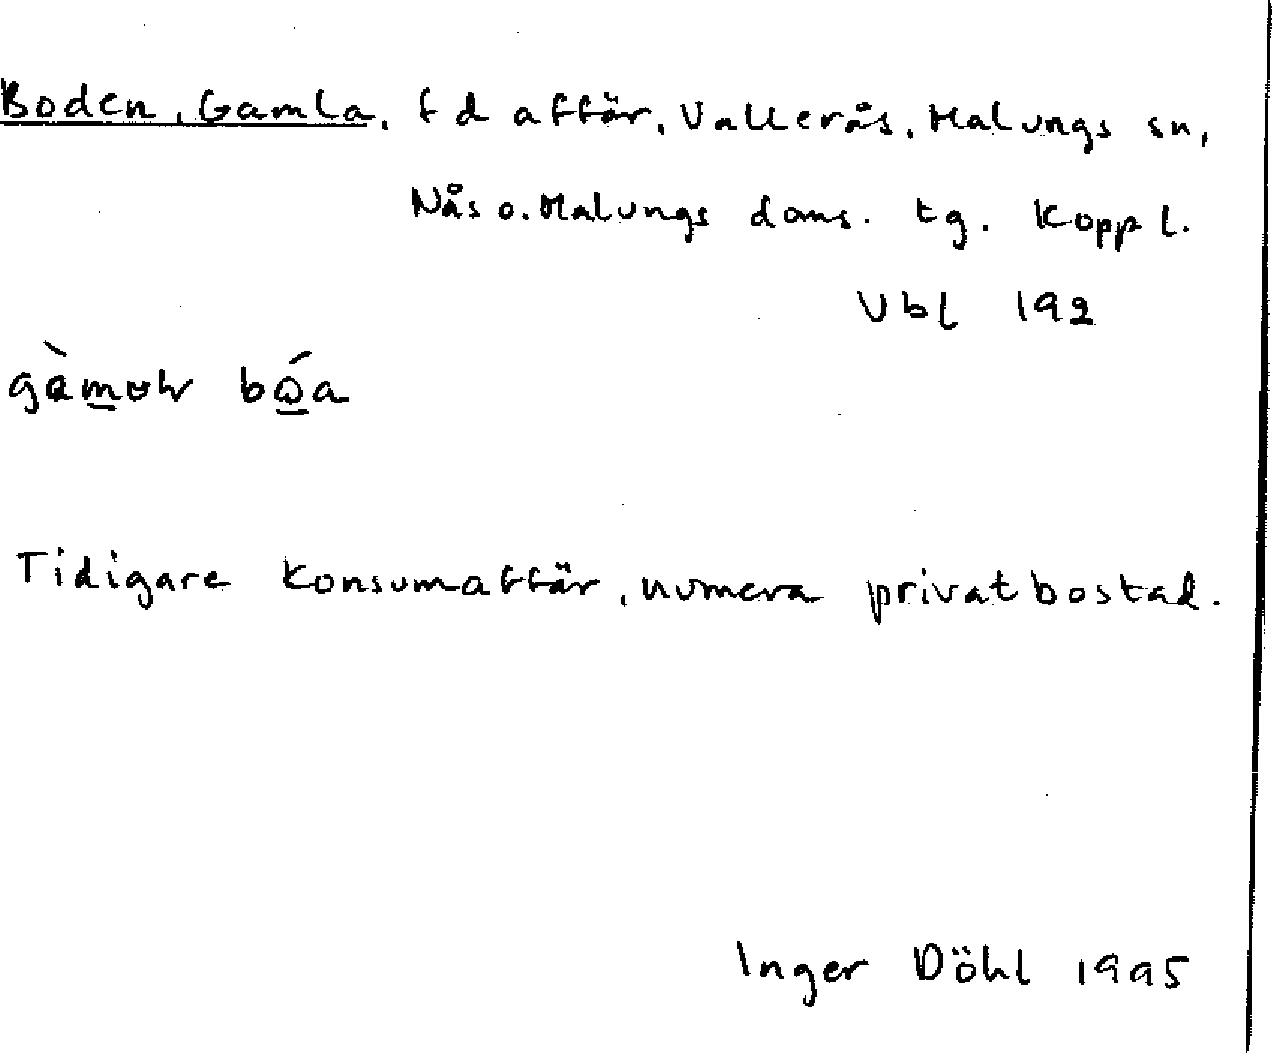 Boden, Gamla, f d affär, Vallerås, Malungs sn,
Nås o. Malungs doms. tg. Kopp l.
Vbl 192
bǫ́a
Tidigare Konsumaffär, numera privatbostad.
Inger Döhl 1995